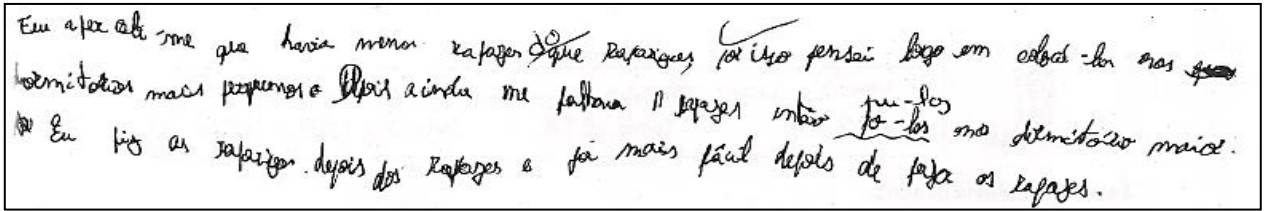 Eu apercebi-me que havia menos rapazes do que raparigas, por isso pensei logo em colocá-los nos
dormitórios mais pequenos e depois ainda me faltava 11 rapazes então pu-los
po-los no dormitório maior.
Eu fiz as raparigas depois dos rapazes e foi mais fácil depois de faser os rapazes.